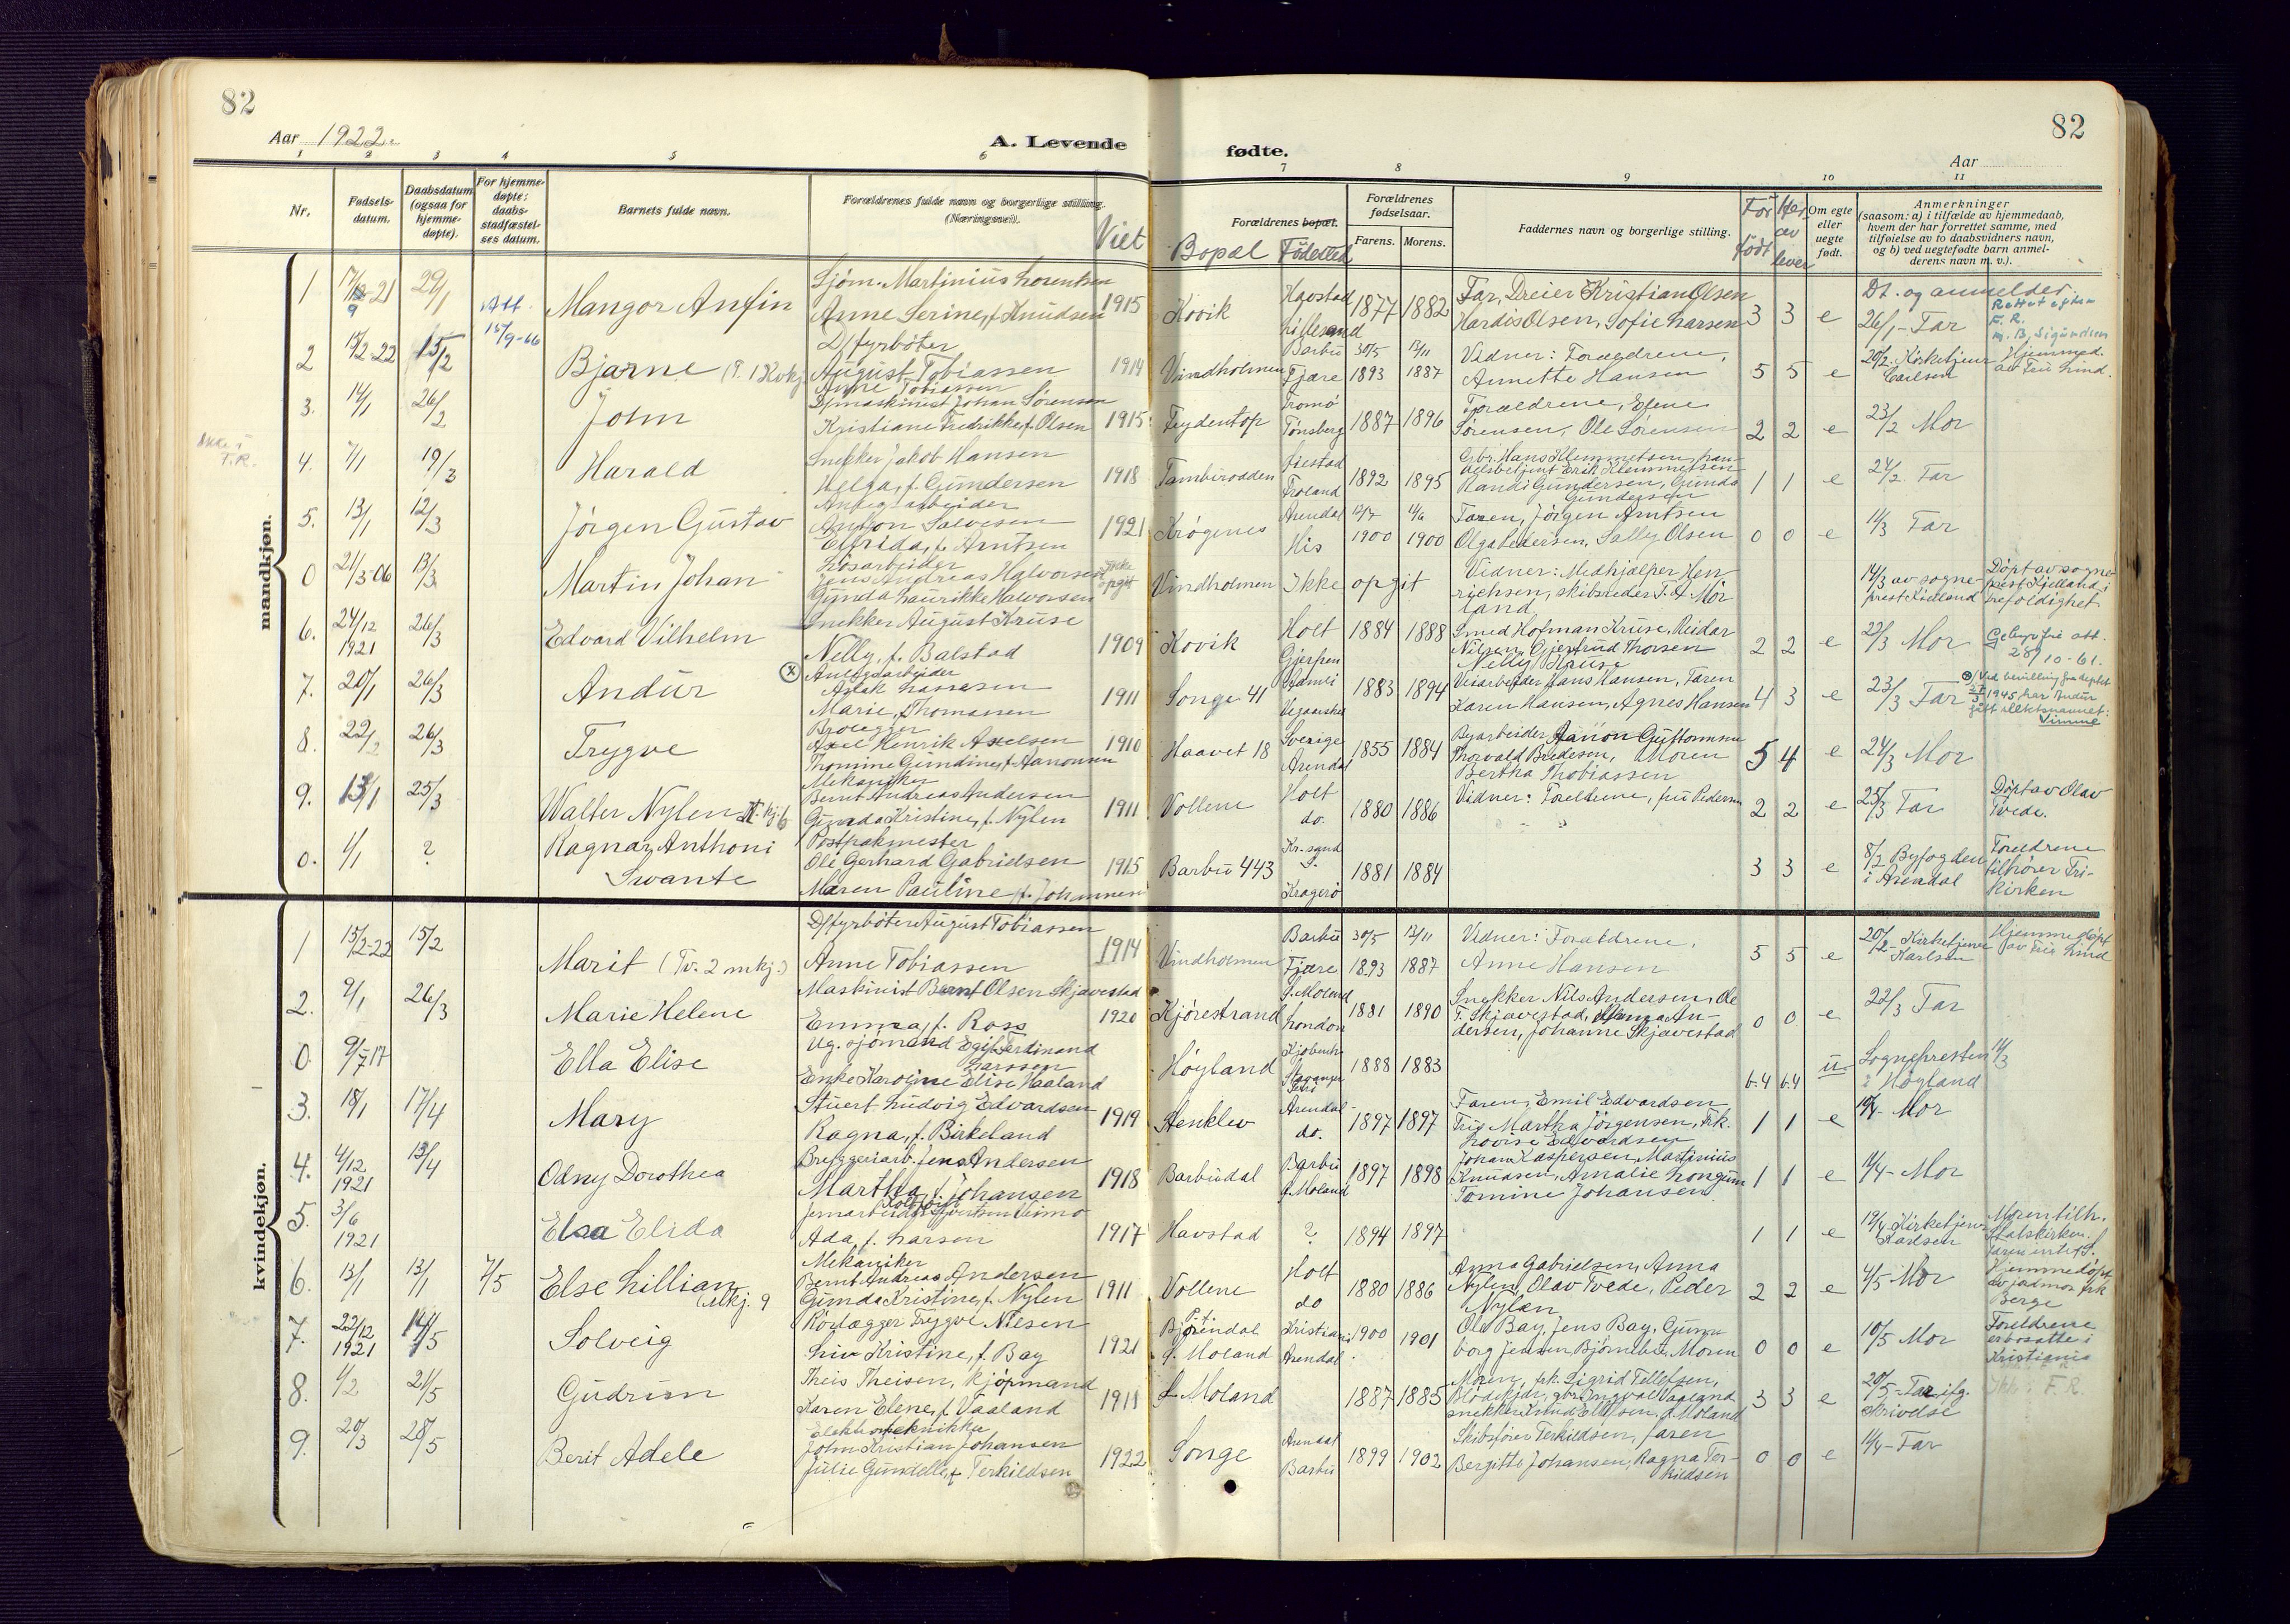 82
82
Aar 1922.
A. Levende
fødte.
Aar
1 2 3 4 5 6 7 8 9 10 11
Nr.
Fødsels-
datum.
Daabsdatum
(ogsaa for
hjemme-
døpte).
For hjemme-
døpte:
daabs-
stadfæstel-
ses datum.
Barnets fulde navn.
Forældrenes fulde navn og borgerlige stilling.
(Næringsvei).
Viet
Forældrenes bopæl.
Bopæl Fødested
Forældrenes
fødselsaar.
Farens. Morens.
Faddernes navn og borgerlige stilling.
Før
født
Har
av
lever
Om egte
eller
uegte
født.
Anmerkninger
(saasom: a) i tilfælde av hjemmedaab,
hvem der har forrettet samme, med
tilføielse av to daabsvidners navn,
og b) ved uegtefødte barn anmel-
derens navn m. v.).
mandkjøn.
1 29/1 Att. 15/9-66 Mangor Anfin
Sjøm. Martinius Lorentsen
Anne Serine, f. Knudsen 1915 Kovik
Lillesand 1877 1882
Far, Dreier Kristian Olsen
Hardis Olsen, Sofie Larsen 3 3 e
Dt. og anmeldt.
26/1 - Far
2 15/2-22 15/2 Bjarne
D/fyrbøter
August Tobiassen
Anne Tobiassen 1914 Vindholmen
Barbu
Fjære
30/5 1893 13/11 1887
Vidner: Forældrene,
Annette Hansen 5 5 e
20/2 Kirketjener
Carlsen
Hjemmed.
av Fru Lind.
3. 14/1 26/2 John
D/maskinist Johan Sørensen
Kristiane Fredrikke f. Olsen 1915 Frydentop
Tromø
Tønsberg 1887 1896
Forældrene, Elene
Sørensen, Ole Sørensen 2 2 e 23/2 Mor
Ikke i
F.R.
4. 7/1 19/3 Harald
Snekker Jakob Hansen
Helga, f. Gundersen 1918
Froland 1892 1895
Gbr. Hans Klemmetsen, han-
delsbetjent Erik Klemmetsen
Randi Gundersen, Gunda
Gundersen 1 1 e 24/2 Far
5. 13/1 12/3 Jörgen Gustav
Anlegsarbeider
Anthon Salvesen
Elfrida, f. Arntsen 1921 Krøgenes
Arendal
His
1900 1900
Faren, Jörgen Arntsen
Olga Pedersen, Sally Olsen 0 0 e 11/3 Far
0 21/3-06 13/3 Martin Johan
Løsarbeider
Jens Andreas Halvorsen
Gunda Laurikke Halvorsen
Ikke
opgit
Vindholmen Ikke opgit
Vidner: Medhjælper Hen-
richsen, skibsreder T. A. Mør
land
14/3 av sogne-
prest Kielland
Døpt av sogne-
prest Kielland,
Trefoldighet
6. 24/12 1921 26/3 Edvard Vilhelm
Snekker August Kruse
Nelly, f. Balstad 1909 Kovik
Holt
Gjerpen 1884 1888
Smed Hofman Kruse, Reidar
Nilsen, Gjertrud Thorsen
Nelly Kruse 2 2 e 22/3 Mor
28/10-61.
7. 20/1 26/3 Andur
Anlegsarbeider
Aslak Lassesen
Marie, f. Thomassen 1911 Songe 41
Gamli
Vegaarshei 1883 1894
Veiarbeider Hans Hansen, Faren
Karen Hansen, Agnes Hansen 4 3 e 23/3 Far
Ved bevilling fra deptet
1945, har Andur
fått slektsnavnet:
Simme
8. 22/2 26/3 Trygve
Brolegger
Axel Henrik Axelsen
Thomine Gundine, f. Aanonsen 1910 Haavet 18
Sverige
Arendal 1855 1884
Byarbeider Aanon Guttormsen
Thorvald Bredesen, Moren
Bertha Thobiassen 5 4 e 24/3 Mor
9. 13/1 25/3 Walter Nylen
Mekaniker
Bernt Andreas Andersen
Gunda Kristine, f. Nylen 1911 Vollene
Holt
do. 1880 1886
Vidner: Foreldrene, fru Pedersen 2 2 e 25/3 Far
Døpt av Olav
Tvede.
0. 1/1 ? Ragnar Anthoni
Swante
Postpakmester
Ole Gerhard Gabrielsen
Maren Pauline f. Johannesen 1915 Barbu 443
Kr.sand
S.
Kragerø 1881 1884 3 3 e
8/2 Byfogden
i Arendal
Foreldrene
tilhører Fri-
kirken
kvindekjøn.
1 15/2-22 15/2 Marit (Tv. 2 mkj.)
D/fyrbøter August Tobiassen
Anne Tobiassen 1914 Vindholmen
Barbu
Fjære
30/5 1893 13/11 1887
Vidner: Forældrene,
Anne Hansen 5 5 e
20/2 - Kirketjener
Karlsen
Hjemmedøpt
av Fru Lind
2. 9/1 26/3 Marie Helene
Maskinist Bernt Olsen Skjævestad
Emma, f. Ross 1920 Kjørestrand
Ø. Moland
London 1881 1890
Snekker Nils Andersen, Ole
T. Skjævestad, An-
dersen, Johanne Skjævestad 0 0 e 22/3 Far
0. 9/7 17 Ella Elise
Ug. sjømand Egil Ferdinand
Larssen
Enke Karoline Elise Haaland
Høyland
Stavanger 1888 1883
6-4 6-4 u
Sognepresten
i Høyland
3. 18/1 17/4 Mary
Stuert Ludvig Edvardsen
Ragna, f. Birkeland 1919 Stenklev
Arendal
do. 1897 1897
Faren, Emil Edvardsen
Fru Martha Jörgensen, Frk.
Lovise Edvardsen 1 1 e Mor
4. 4/12 1921 13/4 Odny Dorothea
Bryggeriarb. Jens Andersen
Martha, f. Johansen 1918 Barbudal
Barbu
Ø. Moland 1897 1898
Johan Kaspersen, Martinius
Knudsen, Amalie Longum
Tomine Johansen 1 1 e 11/4 - Mor
5. 3/6 1921 Elsa Elida
Ada, f. Larsen 1917 Havstad ? 1894 1897 1 1 e
19/4 Kirketjener
Karlsen
Moren tilh.
Statskirken.
6. 13/1 13/1 7/5 Else Lillian
(Mkj. 9
Mekaniker
Bernt Andreas Andersen
Gunda Kristine, f. Nylen 1911 Vollene
Holt
do 1880 1886
Anna Gabrielsen, Anna
Nylen, Olav Tvede, Peder
Nylen 2 2 e 4/5 Mor
Hjemmedøpt
av jordmor frk
Berge
7. 22/12 1921 14/5 Solveig
Rörlægger Trygve Nilsen
Liv Kristine, f. Bay 1921
P.t.
Bjorendal
Ø. Moland
Kristiania
Arendal 1900 1901
Ole Bay, Jens Bay, Gunn
borg Jensen, Moren 0 0 e 10/5 Mor
Foreldrene
er bosatte i
Kristiania
8. 1/2 21/5 Gudrun
Theis Theisen, kjöpmand
Karen Elene, f. Vaaland 1918 Ø. Moland 1887 1885
Moren, frk. Sigrid Tellefsen,
gbr. Ingvald Vaaland
snekker Knud Ellefsen, Ø. Moland 3 3 e
20/5 - Far ifg.
skrivelse
Ikke i F.R.
9. 20/3 28/5 Berit Adele
John Kristian Johansen
Julie Gundelle, f. Terkildsen 1922 Songe
Arendal
Barbu 1899 1902
Skibsfører Terkildsen, faren
Bergitte Johansen, Ragna Ter-
kildsen 0 0 e 11/4 - Far